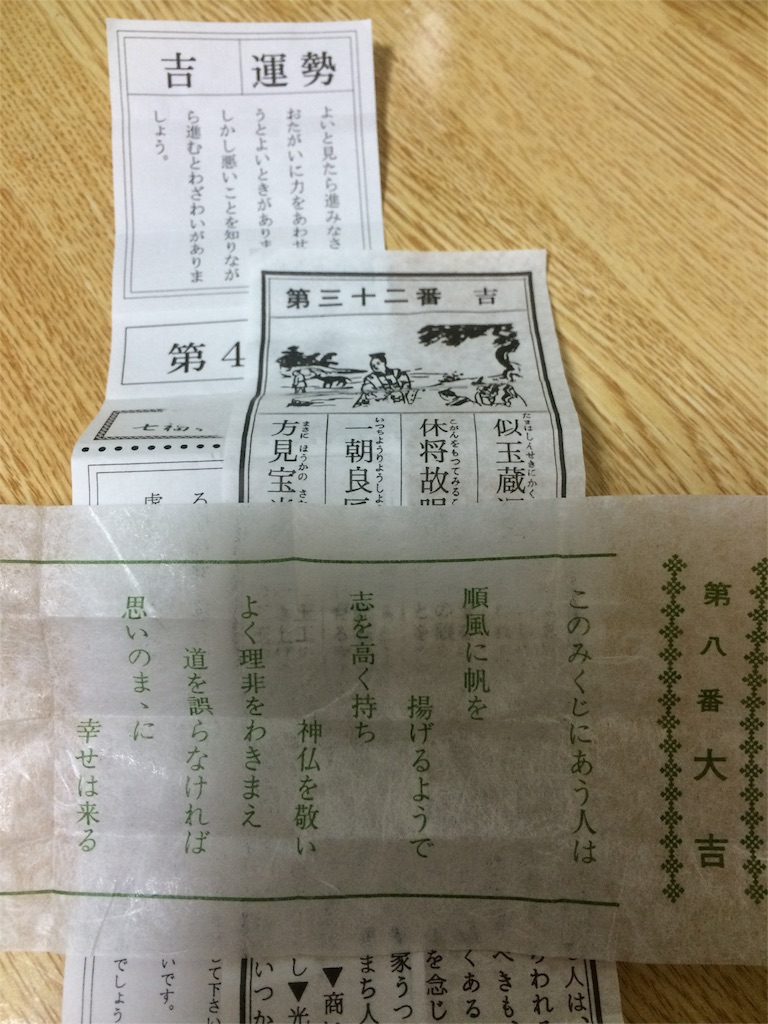 吉 運勢
よいと見たら進みなさ
おたがいに力をあわせ
うとよいときがありま
しかし悪いことを知りなが
ら進むとわざわいがありま
しょう。
第4
七福
第三十二番 吉
似玉蔵
休将故眼
いつちようりようしよ
一朝良辰
まさに ほうかの
方見宝光
第八番 大吉
このみくじにあう人は
順風に帆を
揚げるようで
志を高く持ち
神仏を敬い
よく理非をわきまえ
道を誤らなければ
思いのまゝに
幸せは来る
人は、
られわ
べきも、
くある
を念じ
家うつ
まち人
▼商い
し▼光
いつか
て下さい
いです。
でしょう